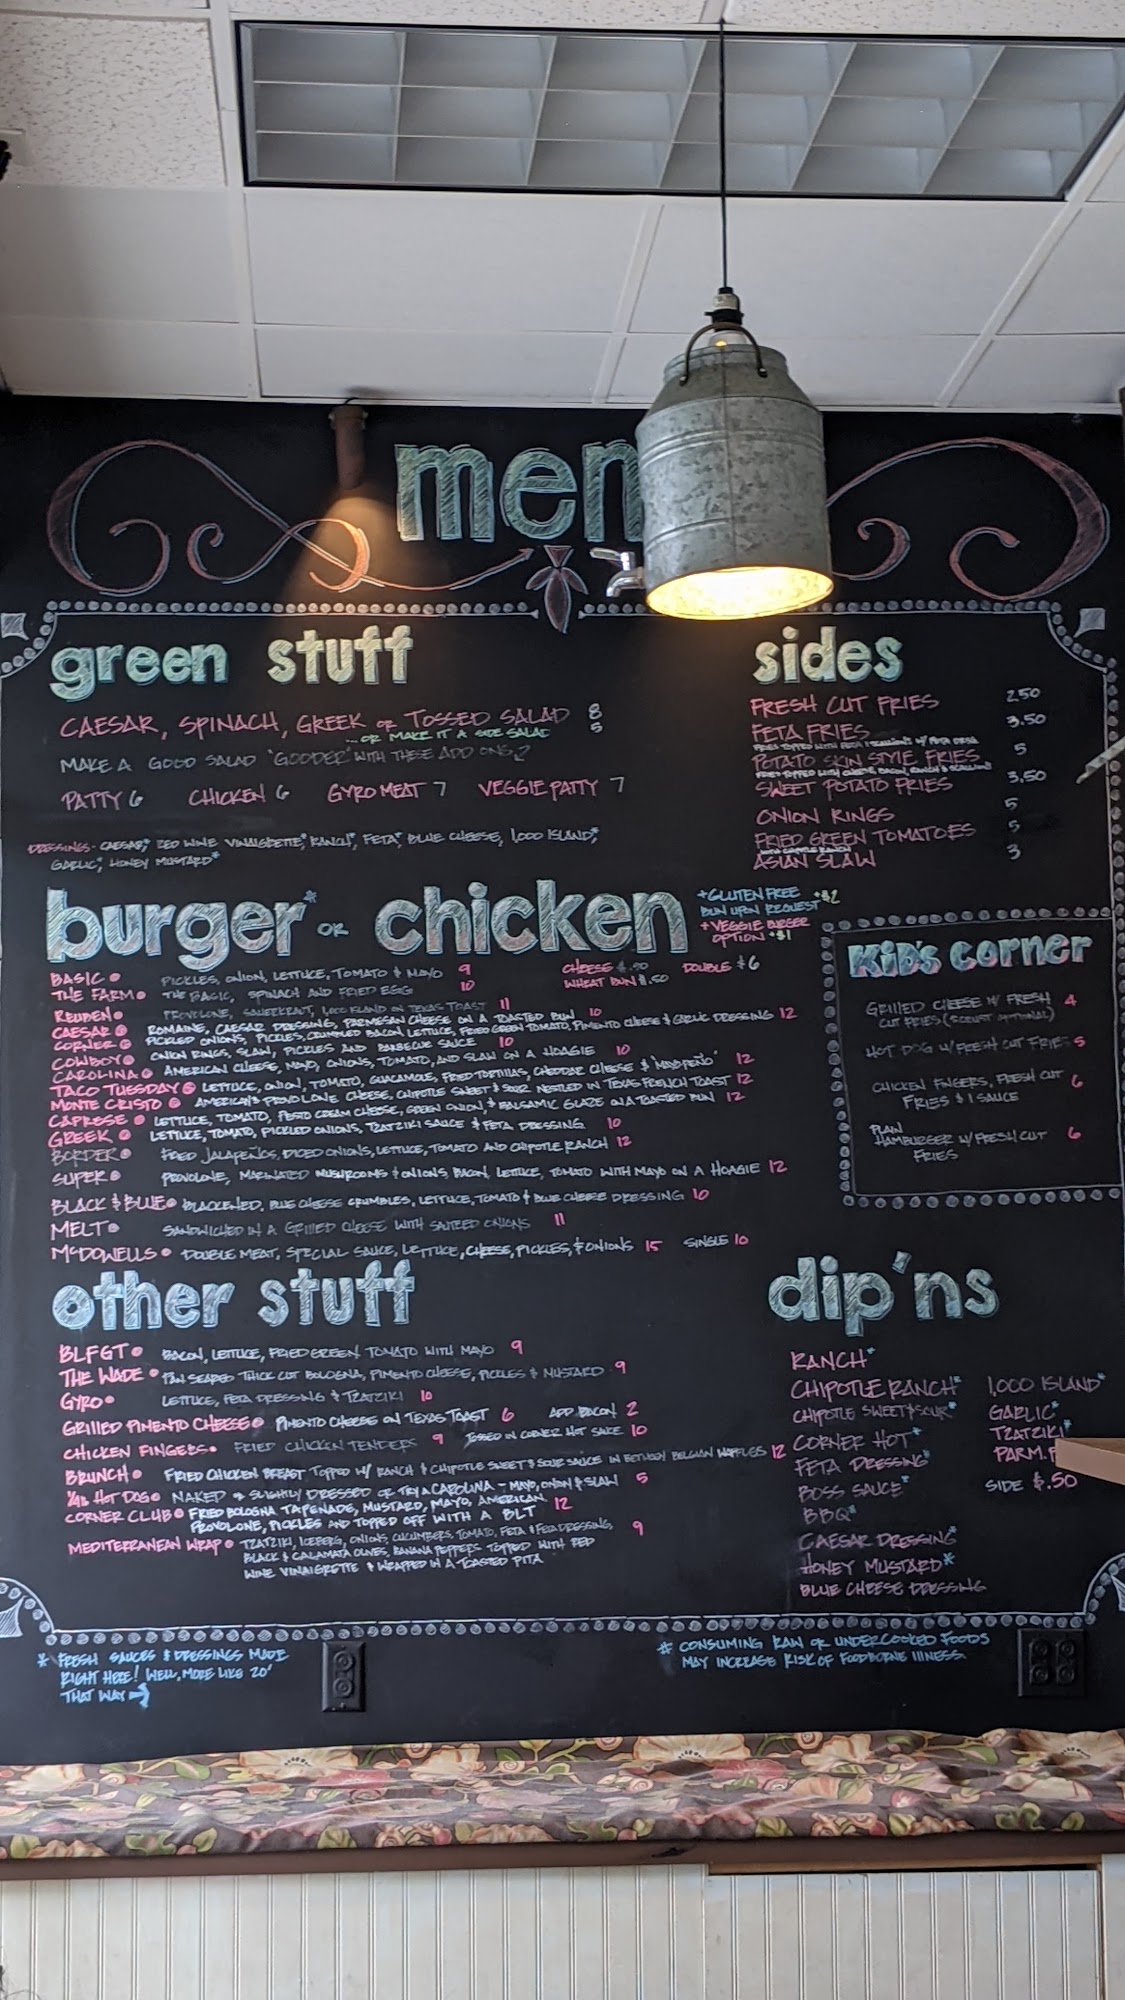 men
green stuff
CAESAR, SPINACH, GREEK or TOSSED SALAD 8
...OR MAKE IT A SIDE SALAD 5
MAKE A GOOD SALAD "GOODER" WITH THESE ADD ONS
PATTY 6 CHICKEN 6 GYRO MEAT 7 VEGGIE PATTY 7
DRESSINGS - CAESAR*, RED WINE VINAIGRETTE*, RANCH*, FETA*, BLUE CHEESE, 1,000 ISLAND*,
GARLIC*, HONEY MUSTARD*
sides
FRESH CUT FRIES 2.50
FETA FRIES 3.50
POTATO SKIN STYLE FRIES 5
SWEET POTATO FRIES 3.50
ONION RINGS 5
FRIED GREEN TOMATOES 5
WITH CHIPOTLE RANCH
ASIAN SLAW 3
burger* OR chicken
+GLUTEN FREE +$2
BUN UPON REQUEST
+VEGGIE BURGER
OPTION +$1
BASIC PICKLES, ONION, LETTUCE, TOMATO & MAYO 9 CHEESE $.50 DOUBLE $6
THE FARM THE BASIC, SPINACH AND FRIED EGG 10 WHEAT BUN $.50
REUBEN PROVOLONE, SAUERKRAUT, 1,000 ISLAND ON TEXAS TOAST 11
CAESAR ROMAINE, CAESAR DRESSING, PARMESAN CHEESE ON A TOASTED BUN 10
CORNER PICKLED ONIONS, PICKLES, CRUMBLED BACON, LETTUCE, FRIED GREEN TOMATO, PIMENTO CHEESE & GARLIC DRESSING 12
COWBOY ONION RINGS, SLAW, PICKLES AND BARBECUE SAUCE 10
CAROLINA AMERICAN CHEESE, MAYO, ONIONS, TOMATO, AND SLAW ON A HOAGIE 10
TACO TUESDAY LETTUCE, ONION, TOMATO, GUACAMOLE, FRIED TORTILLAS, CHEDDAR CHEESE & "MAYOPEÑO" 12
MONTE CRISTO AMERICAN & PROVOLONE CHEESE, CHIPOTLE SWEET & SOUR NESTLED IN TEXAS FRENCH TOAST 12
CAPRESE LETTUCE, TOMATO, PESTO CREAM CHEESE, GREEN ONION, & BALSAMIC GLAZE ON A TOASTED BUN 12
GREEK LETTUCE, TOMATO, PICKLED ONIONS, TZATZIKI SAUCE & FETA DRESSING 10
BORDER FRIED JALAPEÑOS, DICED ONIONS, LETTUCE, TOMATO AND CHIPOTLE RANCH 12
SUPER PROVOLONE, MARINATED MUSHROOMS & ONIONS, BACON, LETTUCE, TOMATO WITH MAYO ON A HOAGIE 12
BLACK & BLUE BLACKENED, BLUE CHEESE CRUMBLES, LETTUCE, TOMATO & BLUE CHEESE DRESSING 10
MELT SANDWICHED IN A GRILLED CHEESE WITH SAUTEED ONIONS 11
McDOWELLS DOUBLE MEAT, SPECIAL SAUCE, LETTUCE, CHEESE, PICKLES, & ONIONS 15 SINGLE 10
KiD's corner
GRILLED CHEESE W/ FRESH 4
CUT FRIES
HOT DOG W/ FRESH CUT FRIES 5
CHICKEN FINGERS, FRESH CUT 6
FRIES & 1 SAUCE
PLAIN
HAMBURGER W/ FRESH CUT 6
FRIES
other stuff
BLFGT BACON, LETTUCE, FRIED GREEN TOMATO WITH MAYO 9
THE WADE PAN SEARED THICK CUT BOLOGNA, PIMENTO CHEESE, PICKLES & MUSTARD 9
GYRO LETTUCE, FETA DRESSING & TZATZIKI 10
GRILLED PIMENTO CHEESE PIMENTO CHEESE ON TEXAS TOAST 6 ADD BACON 2
CHICKEN FINGERS FRIED CHICKEN TENDERS 9 TOSSED IN CORNER HOT SAUCE 10
BRUNCH FRIED CHICKEN BREAST TOPPED W/ RANCH & CHIPOTLE SWEET & SOUR SAUCE IN BELGIAN WAFFLES 12
1/4 lb HOT DOG NAKED or SLIGHTLY DRESSED or TRY A CAROLINA - MAYO, ONION & SLAW 5
CORNER CLUB FRIED BOLOGNA TAPENADE, MUSTARD, MAYO, AMERICAN, 12
PROVOLONE, PICKLES AND TOPPED OFF WITH A BLT
MEDITERRANEAN WRAP TZATZIKI, ICEBERG, ONIONS, CUCUMBERS, TOMATO, FETA & FETA DRESSING, 9
BLACK & CALAMATA OLIVES, BANANA PEPPERS TOPPED WITH RED
WINE VINAIGRETTE & WRAPPED IN A TOASTED PITA
dip'ns
RANCH*
CHIPOTLE RANCH* 1,000 ISLAND*
CHIPOTLE SWEET & SOUR* GARLIC*
CORNER HOT* TZATZIKI*
FETA DRESSING* PARM.
BOSS SAUCE* SIDE $.50
BBQ*
CAESAR DRESSING*
HONEY MUSTARD*
BLUE CHEESE DRESSING
* FRESH SAUCES & DRESSINGS MADE
RIGHT HERE! WELL, MORE LIKE 20'
THAT WAY
* CONSUMING RAW OR UNDERCOOKED FOODS
MAY INCREASE RISK OF FOODBORNE ILLNESS.